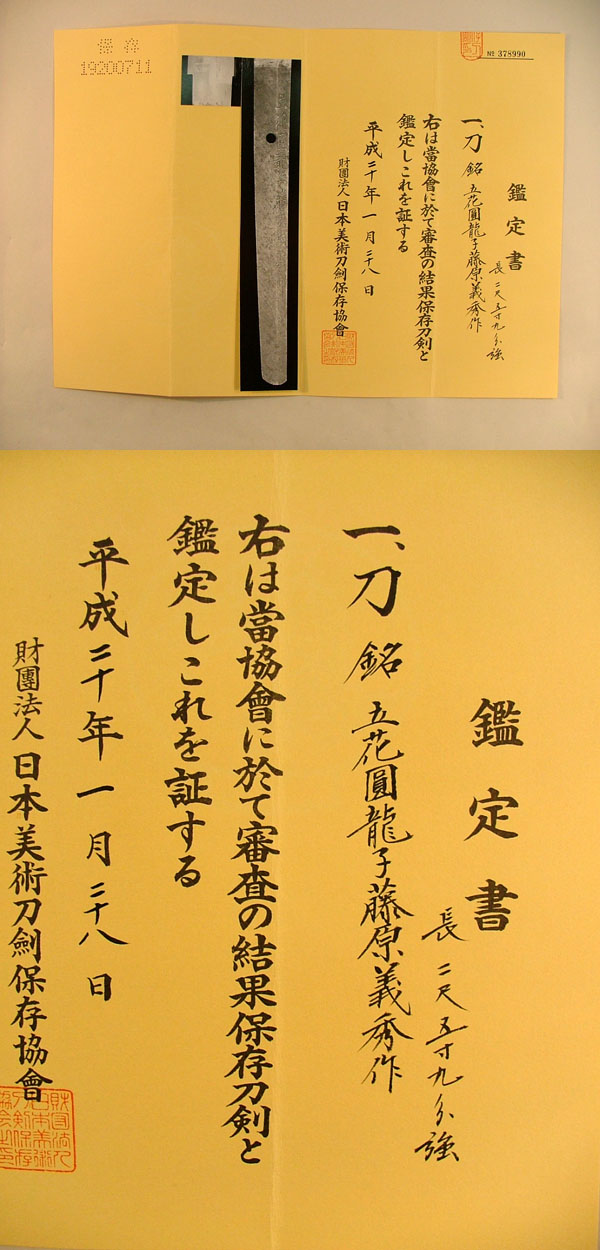 保存
19200711
№ 378990
鑑定書
一、刀 銘 立花圓龍子藤原義秀作
長二尺五寸九分強
右は當協會に於て審査の結果保存刀剣と
鑑定しこれを証する
平成二十年一月二十八日
財團法人日本美術刀劍保存協會
鑑定書
一、刀 銘 立花圓龍子藤原義秀作
長二尺五寸九分強
右は當協會に於て審査の結果保存刀剣と
鑑定しこれを証する
平成二十年一月二十八日
財團法人日本美術刀劍保存協會